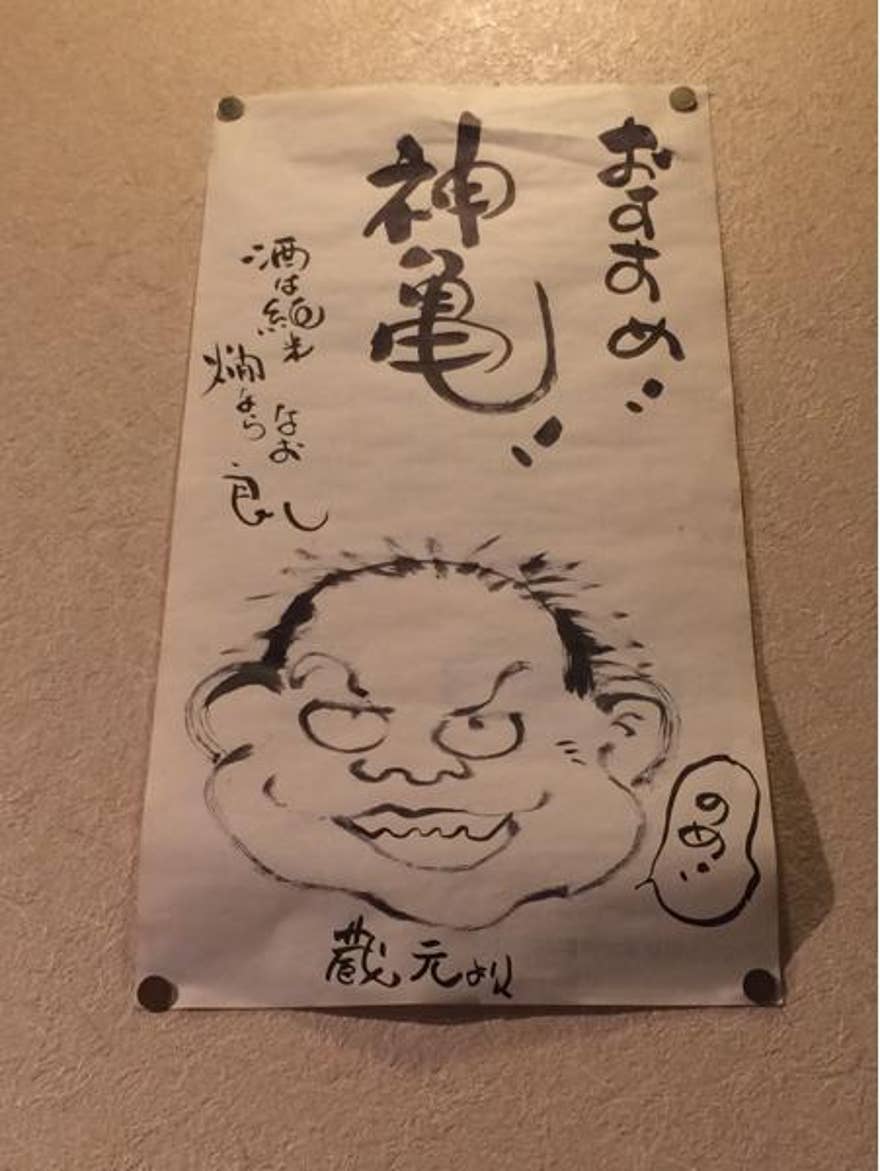 おすすめ!!
神亀!!
酒は純米
燗なら
なお
良し
のめ!!
蔵元より